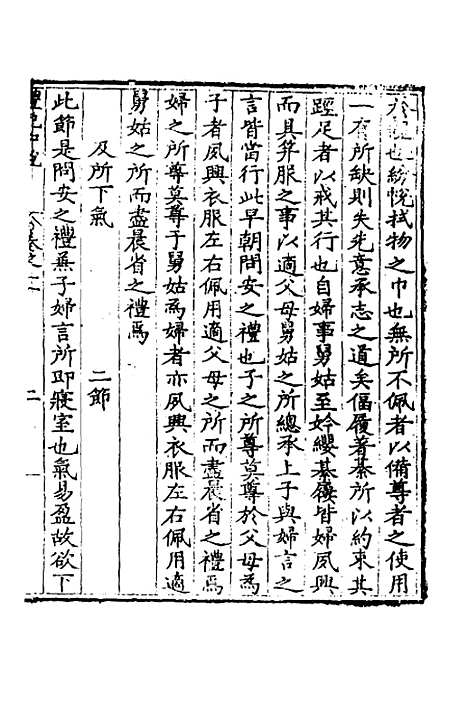 也紛帨拭物之巾也無所不佩者以備尊者之使用
一有所缺則失先意承志之道矣偪屨著綦所以約束其
踁足者以戒其行也自婦事舅姑至衿纓綦屨皆婦夙興
而具笄服之事以適父母舅姑之所總承上子與婦言之
言皆當行此早朝問安之禮也子之所尊莫尊於父母為
子者夙興衣服左右佩用適父母之所而盡晨省之禮焉
婦之所尊莫尊于舅姑為婦者亦夙興衣服左右佩用適
舅姑之所而盡晨省之禮焉
及所下氣　　二節
此節是問安之禮兼子婦言所即寢室也氣易盈故欲下
卷之 二